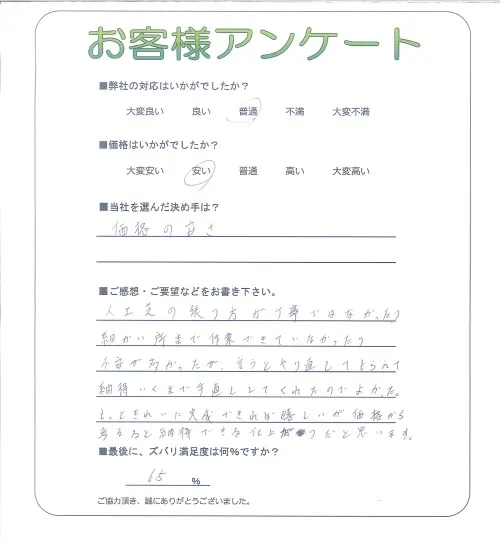 お客様アンケート
■弊社の対応はいかがでしたか?
大変良い 良い 普通 不満 大変不満
■価格はいかがでしたか?
大変安い 安い 普通 高い 大変高い
■当社を選んだ決め手は?
価格の安さ
■ご感想・ご要望などをお書き下さい。
人工芝の張り方が丁寧ではなかったり
細かい所まで作業できていなかったり
不備が多かったが、言うとやり直してもらえて
納得いくまで手直ししてくれたのでよかった。
もっときれいに完成できれば嬉しいが価格から
考えると納得できる仕上がりだと思います。
■最後に、ズバリ満足度は何%ですか?
65 %
ご協力頂き、誠にありがとうございました。